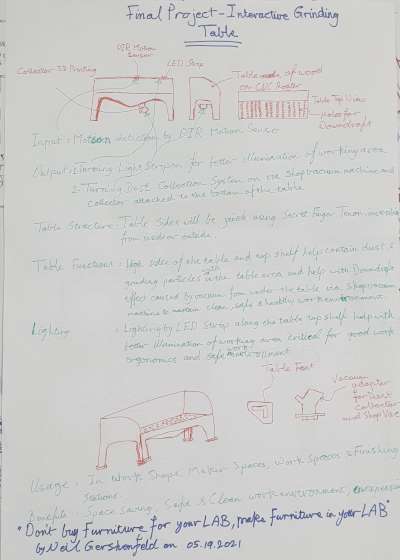 Final Project - Interactive Grinding
Table
PIR Motion
Sensor
LED Strip
Collector 3D Printing
Table made of wood
on CNC Router
Table Top View
Holes for
Downdraft
Input : Motion detection by PIR Motion Sensor
Output : 1- Turning Light Strip on for better illumination of working area
2- Turning Dust Collection System on via Shop vacuum machine and
collector attached to the bottom of the table.
Table Structure : Table Sides will be joined using Secret Finger Tenon
from inside or outside.
Table Functions : Up sides of the table and top shelf help contain dust &
grinding particles with in the table area and help with Downdraft
effect caused by vacuum from under the table via Shop vacuum
machine to maintain clean, safe & healthy work environment.
Lighting : Lighting by LED Strip along the table top shelf help with
better illumination of working area critical for good work
ergonomics and safe work environment
Table Foot
Vacuum
adapter
for Dust
collector
and Shop Vac
Usage : In Work Shops, Maker Spaces, Work Spaces & Finishing
Stations.
Benefits : Space Saving, Safe & Clean work environment,
"Don't buy Furniture for your LAB, make Furniture in your LAB"
by Neil Gershenfeld on 05.19.2021